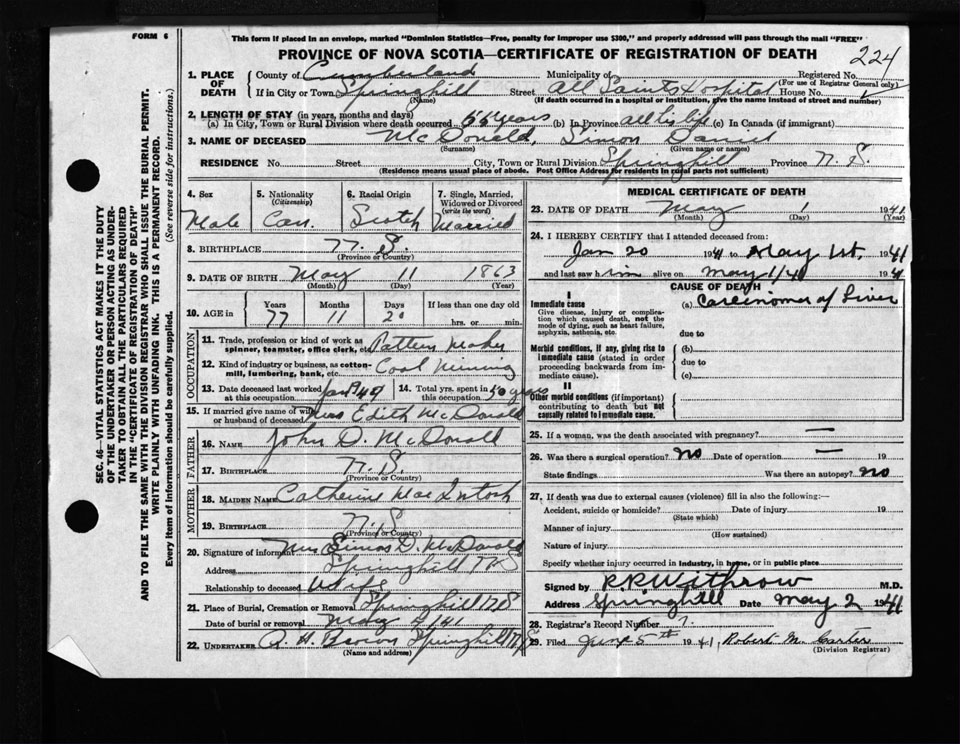 FORM 6
This form if placed in an envelope, marked "Dominion Statistics—Free, penalty for improper use $300," and properly addressed will pass through the mail "FREE"
PROVINCE OF NOVA SCOTIA—CERTIFICATE OF REGISTRATION OF DEATH
224
1. PLACE OF DEATH County of Cumberland Municipality of Registered No.
(For use of Registrar General only)
If in City or Town Springhill Street All Saints Hospital House No.
(Name) (If death occurred in a hospital or institution, give the name instead of street and number)
2. LENGTH OF STAY (in years, months and days)
(a) In City, Town or Rural Division where death occurred 55 years (b) In Province all his life (c) In Canada (if immigrant)
3. NAME OF DECEASED McDonald, Simon Daniel
(Surname) (Given name or names)
RESIDENCE No. Street City, Town or Rural Division Springhill Province N. S.
(Residence means usual place of abode. Post Office Address for residents in rural parts not sufficient)
4. Sex Male
5. Nationality (Citizenship) Can.
6. Racial Origin Scotch
7. Single, Married, Widowed or Divorced (write the word) Married
8. BIRTHPLACE N. S.
(Province or Country)
9. DATE OF BIRTH May 11 1863
(Month) (Day) (Year)
10. AGE in Years Months Days If less than one day old
77 11 20 hrs. or min.
OCCUPATION
11. Trade, profession or kind of work as spinner, teamster, office clerk, etc. Pattern Maker
12. Kind of industry or business, as cotton-mill, lumbering, bank, etc. Coal Mining
13. Date deceased last worked at this occupation
14. Total yrs. spent in this occupation 50 years
15. If married give name of wife or husband of deceased Mrs Edith McDonald
FATHER
16. NAME John D. McDonald
17. BIRTHPLACE N. S.
(Province or Country)
MOTHER
18. MAIDEN NAME Catherine MacIntosh
19. BIRTHPLACE N. S.
(Province or Country)
20. Signature of informant Mrs Simon D. McDonald
Address Springhill N S
Relationship to deceased Wife
21. Place of Burial, Cremation or Removal Springhill N S
Date of burial or removal May 4/41
22. UNDERTAKER A. H. Brown Springhill N S
(Name and address)
MEDICAL CERTIFICATE OF DEATH
23. DATE OF DEATH May 1 1941
(Month) (Day) (Year)
24. I HEREBY CERTIFY that I attended deceased from:
Jan 20 1941 to May 1st, 1941
and last saw him alive on May 1/41 1941
CAUSE OF DEATH
I
Immediate cause (a) Carcinoma of Liver
Give disease, injury or complication which caused death, not the mode of dying, such as heart failure, asphyxia, asthenia, etc.
due to
Morbid conditions, if any, giving rise to immediate cause (stated in order proceeding backwards from immediate cause).
(b)
due to
(c)
II
Other morbid conditions (if important) contributing to death but not causally related to immediate cause.
25. If a woman, was the death associated with pregnancy? —
26. Was there a surgical operation? No Date of operation —
State findings Was there an autopsy? No
27. If death was due to external causes (violence) fill in also the following:—
Accident, suicide or homicide? Date of injury 19
(State which)
Manner of injury
(How sustained)
Nature of injury
Specify whether injury occurred in industry, in home, or in public place
Signed by R R Withrow M.D.
Address Springhill Date May 2 1941
28. Registrar's Record Number 7.
29. Filed June 5th 1941 Robert M. Carter
(Division Registrar)
SEC. 46—VITAL STATISTICS ACT MAKES IT THE DUTY
OF THE UNDERTAKER OR PERSON ACTING AS UNDER-
TAKER TO OBTAIN ALL THE PARTICULARS REQUIRED
IN THE "CERTIFICATE OF REGISTRATION OF DEATH"
AND TO FILE THE SAME WITH THE DIVISION REGISTRAR WHO SHALL ISSUE THE BURIAL PERMIT.
WRITE PLAINLY WITH UNFADING INK. THIS IS A PERMANENT RECORD.
Every item of information should be carefully supplied. (See reverse side for instructions.)